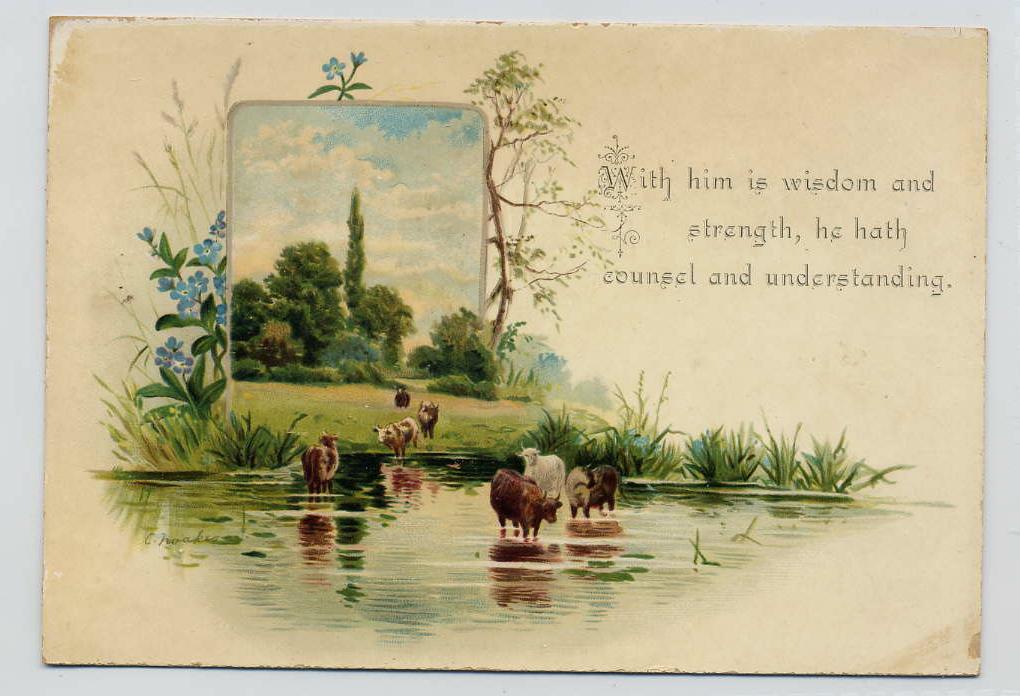 With him is wisdom and
strength, he hath
counsel and understanding.
C. Noakes